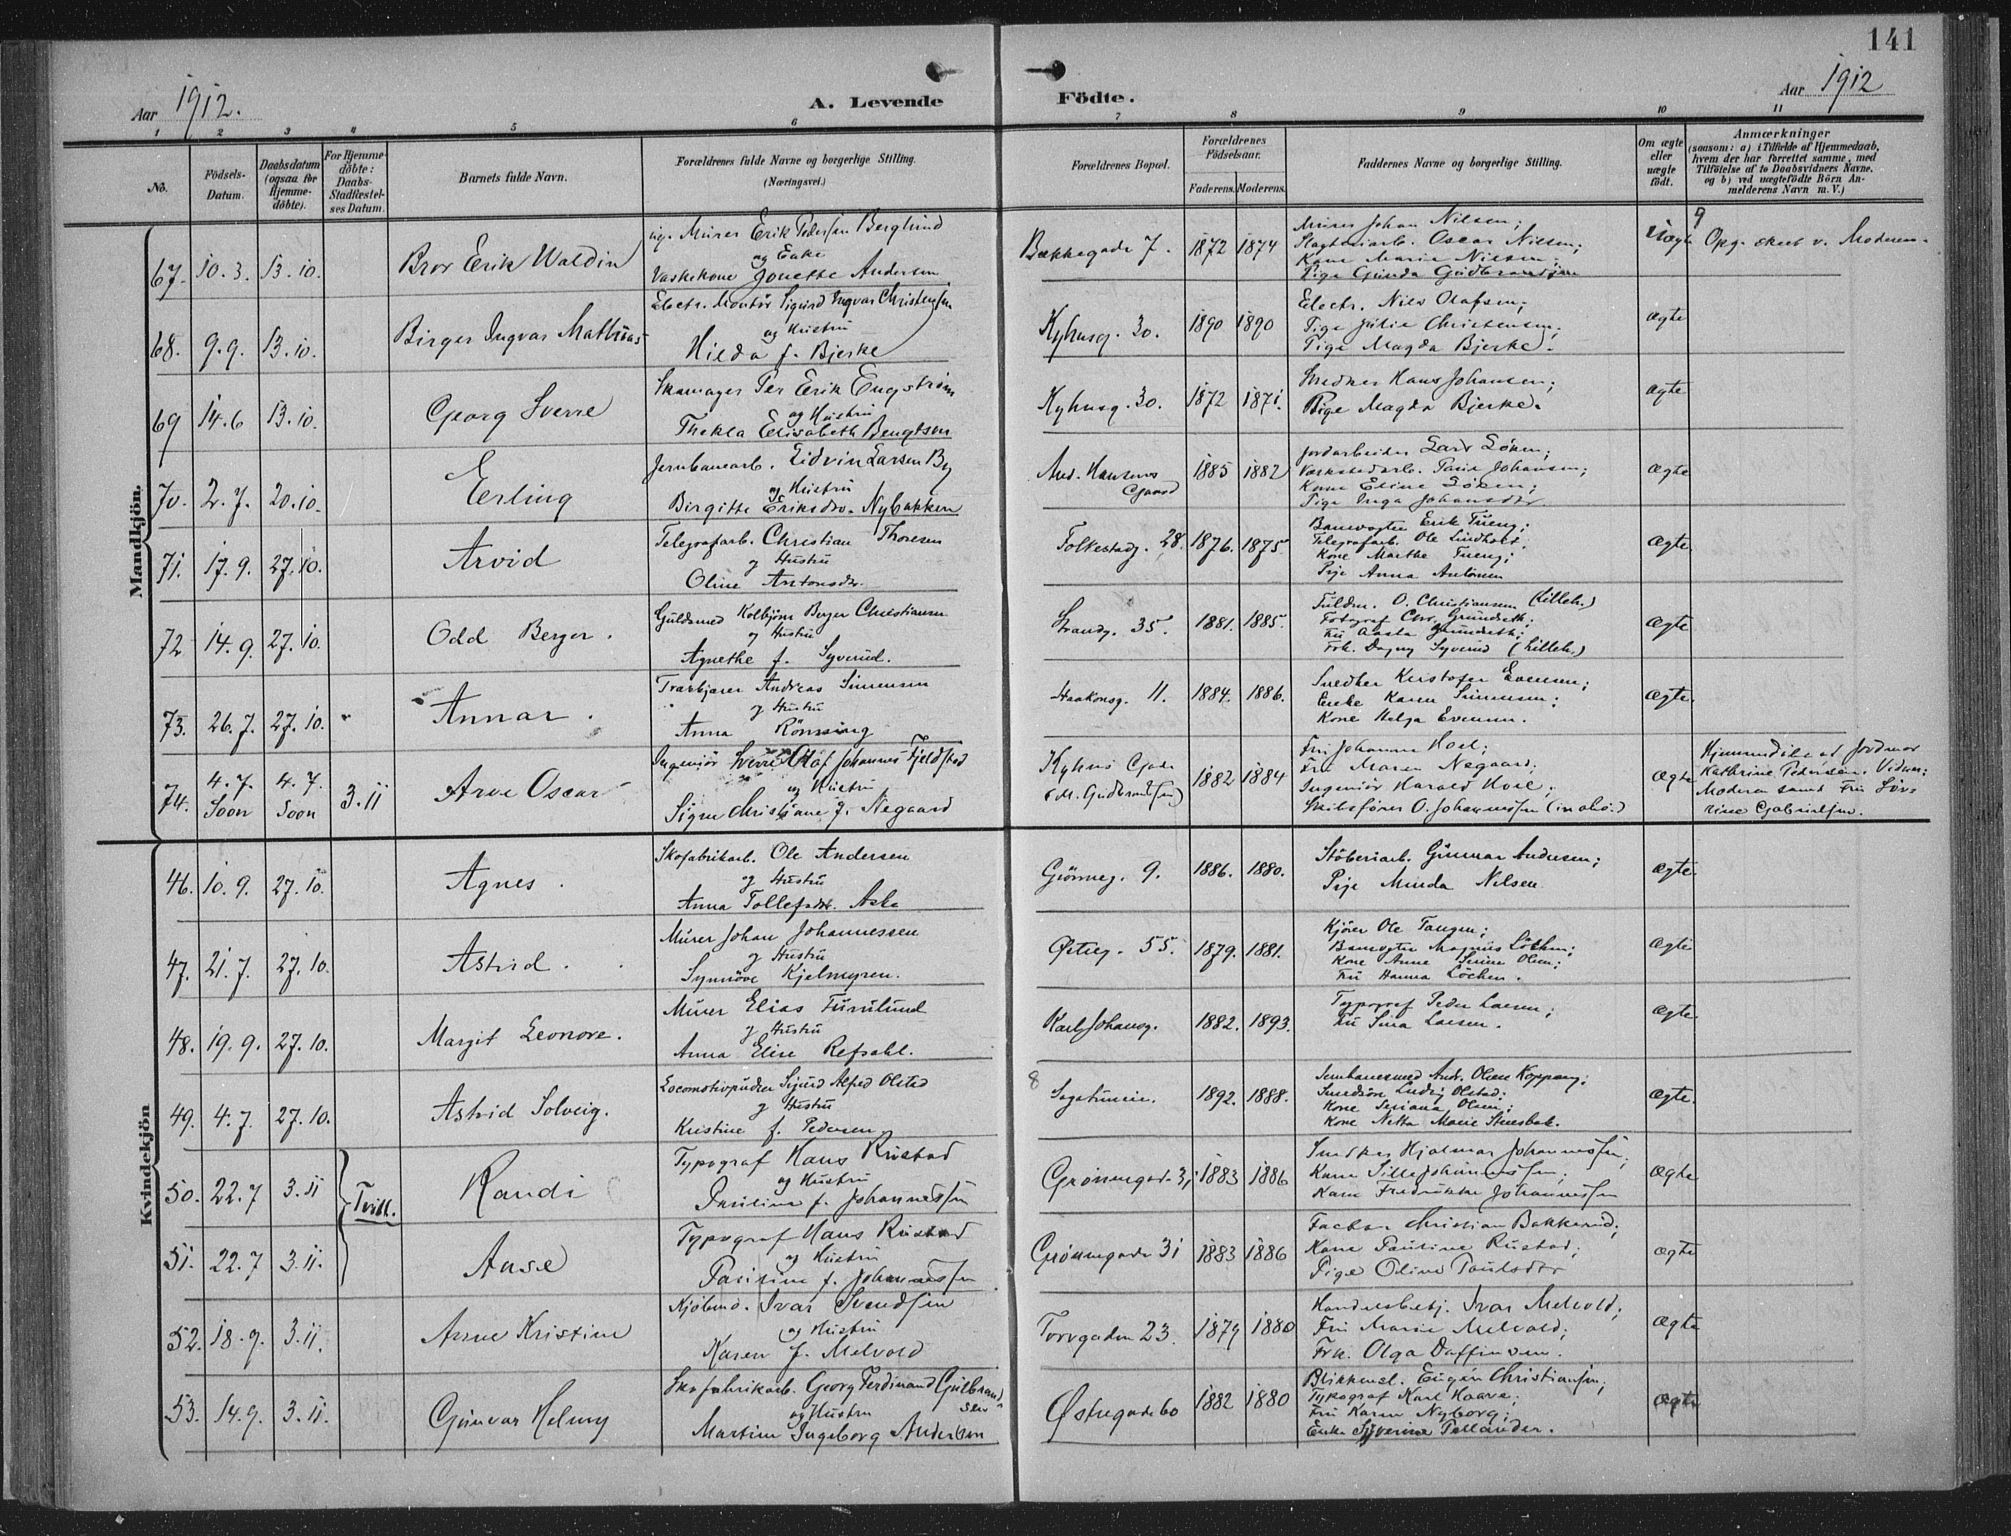 141
Aar 1912.
A. Levende Födte.
Aar 1912
1 2 3 4 5 6 7 8 9 10 11
No.
Födsels-Datum.
Daabsdatum (ogsaa for Hjemme-döbte).
For Hjemme-döbte: Daabs-Stadfæstel-ses Datum.
Barnets fulde Navn.
Forældrenes fulde Navne og borgerlige Stilling.
(Næringsvei.)
Forældrenes Bopæl.
Forældrenes Födselsaar.
Faderens. Moderens.
Faddernes Navne og borgerlige Stilling.
Om ægte eller uægte födt.
Anmærkninger
(saasom: a) i Tilfælde af Hjemmedaab, hvem der har forrettet samme, med Tilföielse af to Daabsvidners Navne, og b) ved uægtefödte Börn Anmelderens Navn m. V.)
Mandkjön.
67. 10. 3. 13. 10. Bror Erik Waldin
ug. Murer Erik Pedersen Berglund
og Enke
Vaskekone Jonette Andersen
Bakkegade 7. 1872 1874
Murer Johan Nilsen;
Slagteriarb. Oscar Nilsen;
Kone Marie Nilsen;
Pige Gunda Gudbrandsen
Uægte
9
Opg. skeet v. Moderen.
68. 9. 9. 13. 10. Birger Ingvar Mathias
Electr. Montör Sigurd Ingvar Christensen
og Hustru
Hilda f. Bjerke
Kyhusg. 30. 1890 1890
Electr. Nils Olafsen;
Pige Julie Christensen;
Pige Magda Bjerke.
ægte
69 14. 6 13. 10. Georg Sverre
Skomager Per Erik Engström
og Hustru
Thekla Elisabeth Bengtson
Kyhusg. 30. 1872 1871.
Snedker Hans Johansen;
Pige Magda Bjerke.
ægte
70. 2. 7. 20. 10. Erling
Jernbanearb. Eidvin Larsen By
og Hustru
Birgitte Eriksdtr. Nybakken
And. Hansens Gaard 1885 1882
Jordarbeider Lars Löken;
Værkstedarb. Paul Johansen;
Kone Eline Löken;
Pige Inga Johansdtr.
Ægte
71. 17. 9. 27. 10. Arvid
Telegrafarb. Christian Thoresen
og Hustru
Oline Antonsdtr.
Folkestadg. 28. 1876. 1875
Banevogter Erik Tueng;
Telegrafarb. Ole Lindholt;
Kone Marthe Tueng;
Pige Anna Antonsen
Ægte.
72 14. 9. 27. 10. Odd Berger.
Guldsmed Kolbjörn Berger Christiansen
og Hustru
Agnethe f. Syverud.
Strandg. 35. 1881. 1885.
Fuldm. O. Christiansen (Lilleh.)
Fotograf Chr. Grundseth;
Fru Aasta Grundseth;
Frk. Dagny Syverud (Lilleh.)
Ægte
73. 26. 7. 27. 10. Annar.
Træskjærer Andreas Simensen
og Hustru
Anna Rönning
Haakonsg. 11. 1884. 1886.
Snedker Kristofer Evensen;
Enke Karen Simensen;
Kone Helga Evensen.
Ægte.
74. 4. 7. Soon 4. 7. Soon 3. 11 Arve Oscar
Ingeniör Sverre Olaf Johannes Fjeldstad
og Hustru
Signe Christiane f. Negaard
Kyhns Gade
(M. Gudbrandsen) 1882 1884
Fru Johanne Hoel;
Fru Maren Negaard;
Ingeniör Harald Hoel;
Skibsförer O. Johannessen (in abs.)
Ægte
Hjemmedöbt af Jordmor
Kathrine Pedersen. Vidner:
Moderen samt Fru Sörine Gabrielsen.
Kvindekjön
46. 10. 9. 27. 10. Agnes.
Skofabrikarb. Ole Andersen
og Hustru
Anna Tollefsdtr. Aske
Grönneg. 9. 1886. 1880.
Stöberiarb. Gunnar Andersen;
Pige Minda Nilsen
Ægte
47. 21. 7. 27. 10. Astrid.
Murer Johan Johannessen
og Hustru
Synnöve Kjelmyren.
Østreg. 55. 1879. 1881.
Kjörer Ole Tangen;
Banevogter Magnus Löchen;
Kone Anne Serine Olsen;
Fru Hanna Löchen.
Ægte
48. 19. 9. 27. 10. Margit Leonore.
Murer Elias Furulund
og Hustru
Anna Elise Refsahl.
Karl Johansg. 1882. 1893.
Typograf Peder Larsen;
Fru Sina Larsen.
Ægte
49. 4. 7. 27. 10. Astrid Solveig.
Locomotivpudser Sigurd Alfred Olstad
og Hustru
Kristine f. Pedersen
8
Sagatunvn. 1892. 1888.
Jernbanesmed Andr. Olsen Koppang;
Smedsön Ludvig Olstad;
Kone Seriana Olsen;
Kone Netta Marie Stuesbak.
Ægte.
50. 22. 7 3. 11 Tvill. Randi
Typograf Hans Rustad
og Hustru
Pauline f. Johannessen
Grönnegade 31 1883 1886
Snedker Hjalmar Johannessen;
Kone Sille Johannessen;
Kone Fredrikke Johannessen
Ægte
51. 22. 7 3. 11. Aase
Typograf Hans Rustad
og Hustru
Pauline f. Johannessen
Grönnegade 31 1883 1886
Factor Christian Bakkerud;
Kone Pauline Rustad;
Pige Oline Paulsdtr
Ægte
52. 18. 9. 3. 11. Anne Kristine
Kjöbmd. Ivar Svendsen
og Hustru
Karen f. Melvold
Torvgaden 23. 1879 1880
Handelsbetj. Ivar Melvold;
Fru Marie Melvold;
Frk. Olga Daffinsen.
Ægte
53. 14. 9. 3. 11. Gunvor Helmy
Skofabrikarb. Georg Ferdinand Gulbrandsen
og Hustru
Martine Ingeborg Andersen
Østregade 60 1882 1880
Blikkensl. Eugen Christiansen;
Typograf Karl Haave;
Fru Karen Nyborg;
Enke Syverine Pellander.
Ægte